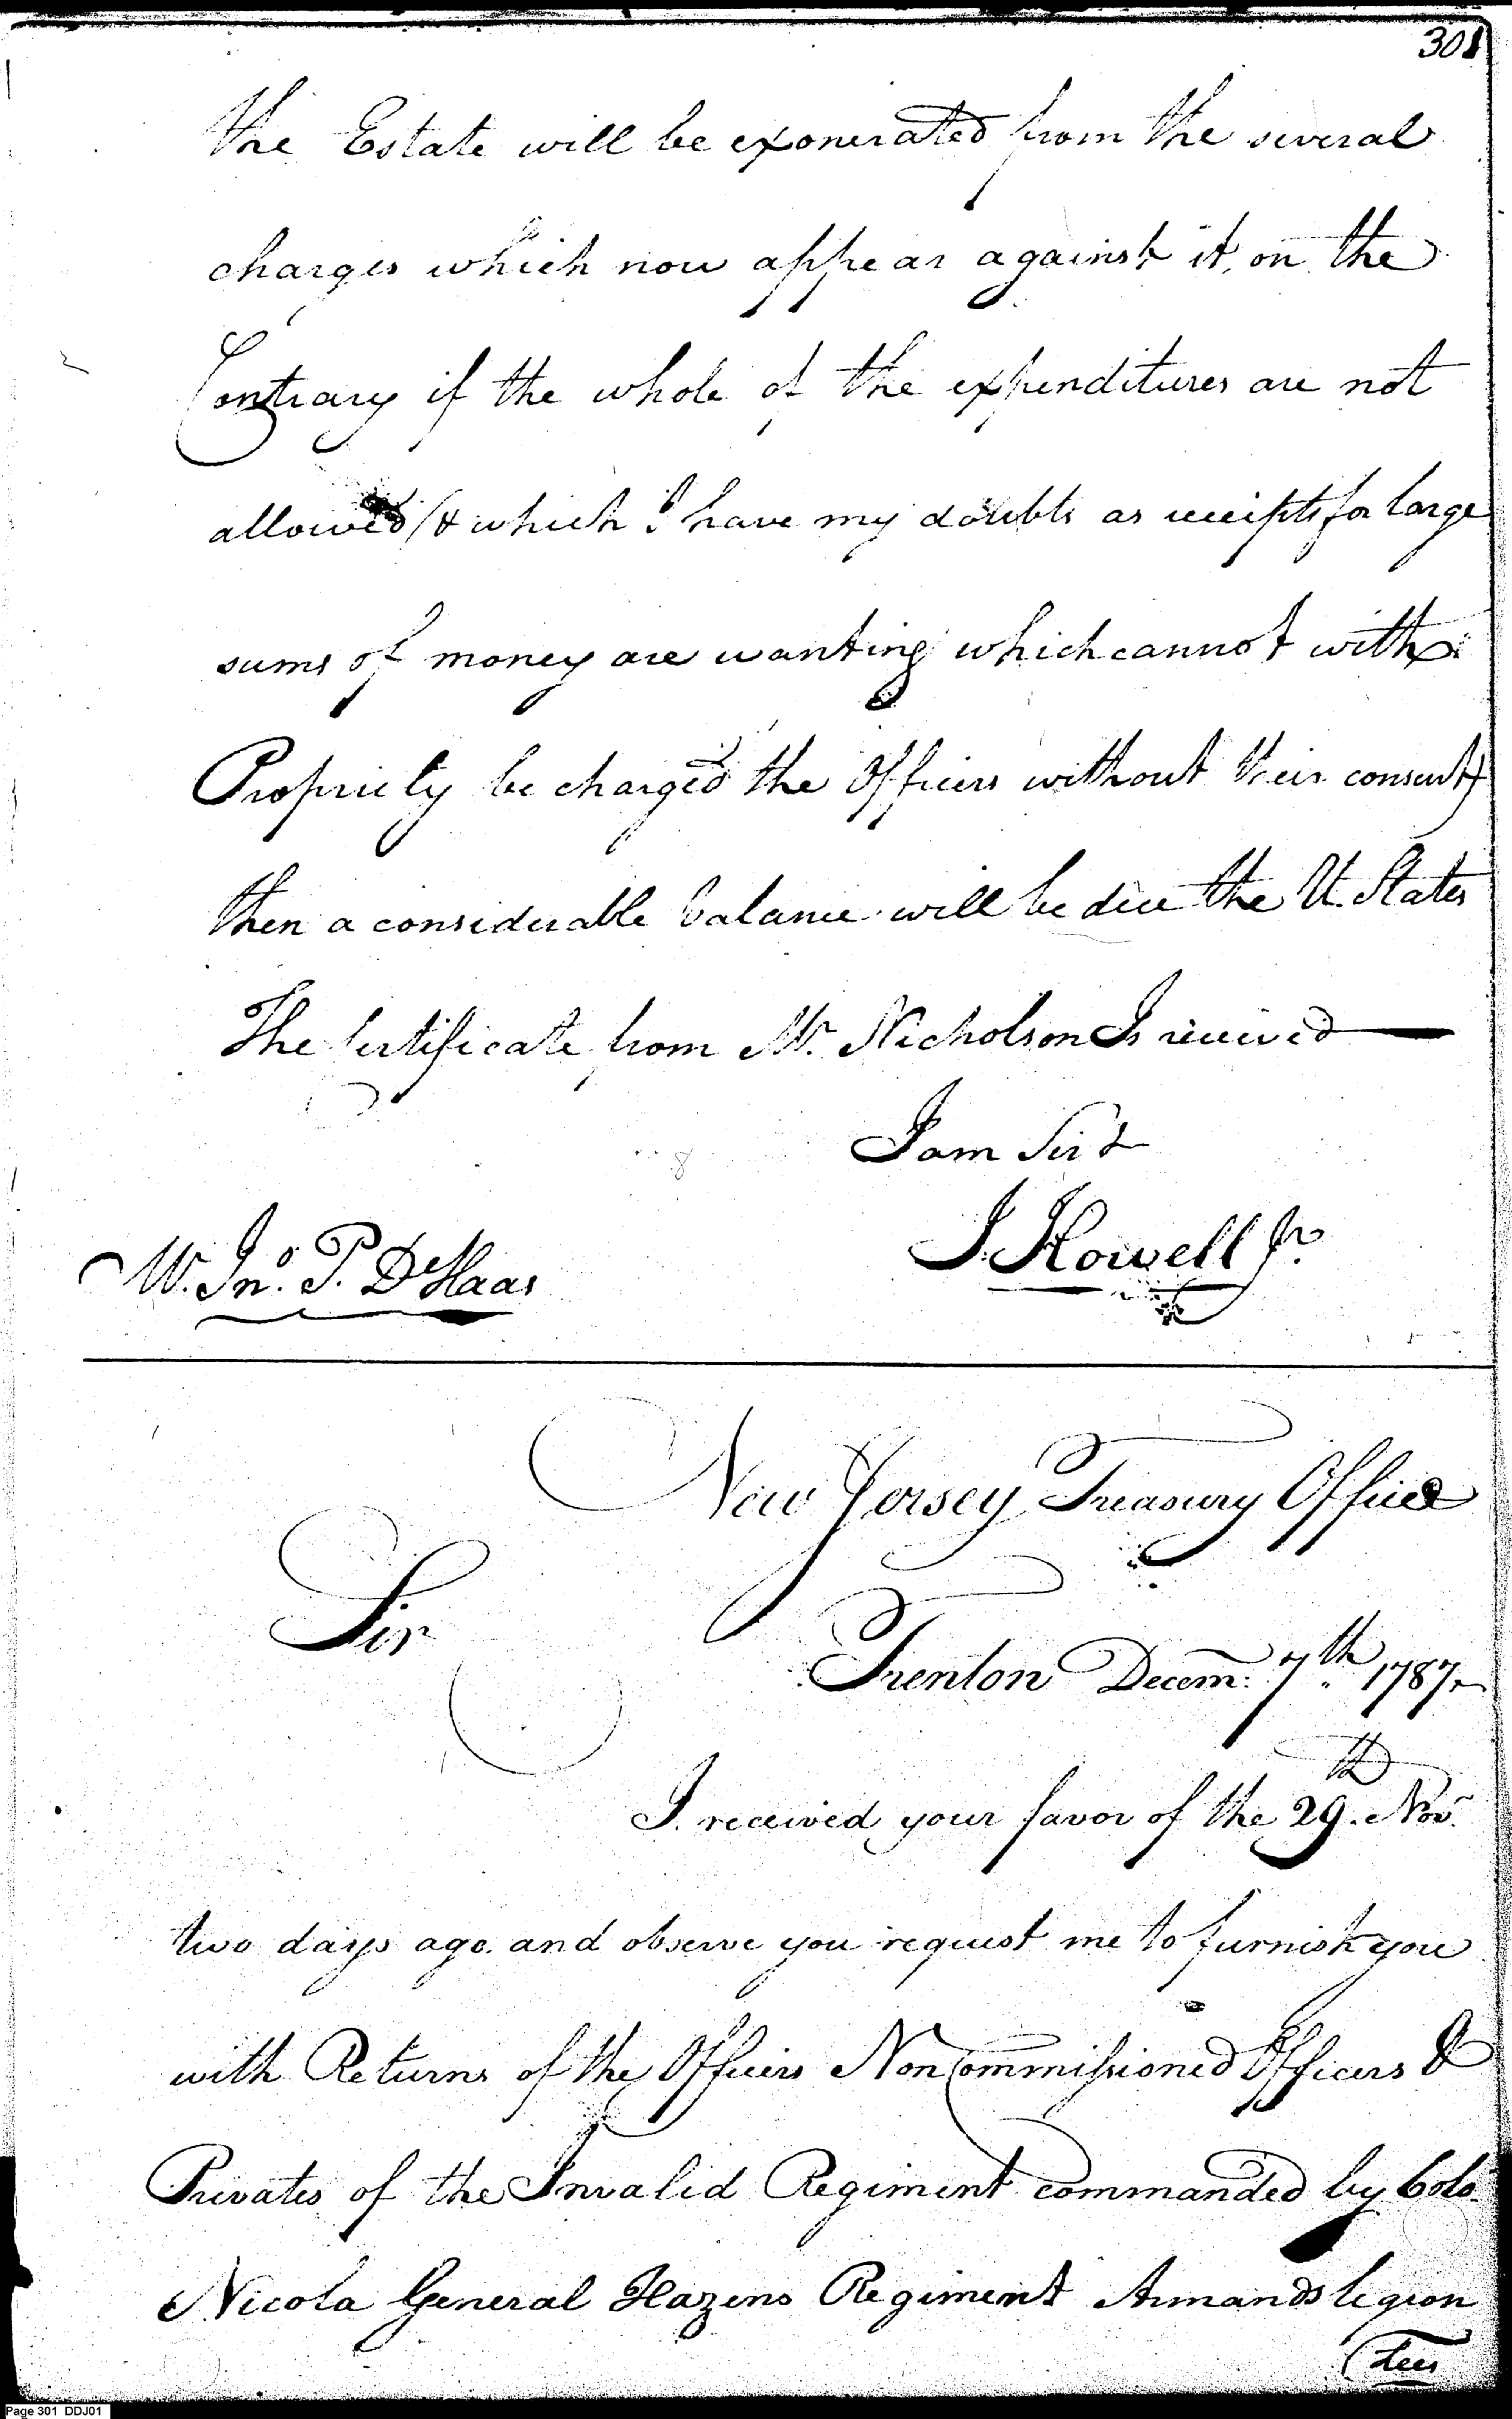 301
the Estate will be exonerated from the several
charges which now appear against it, on the
Contrary if the whole of the expenditures are not
allowed (& which I have my doubts as receipts for large
sums of money are wanting which cannot with
Propriety be charged the Officers without their consent)
then a considerable balance will be due the U. States
The Certificate from Mr. Nicholson Is received
I am Sir &
J. Howell Jr.
W. Jno. P. DHaas
New Jersey Treasury Office
Sir
Trenton Decem: 7th 1787,
I received your favor of the 29th. Novr.
two days ago. and observe you request me to furnish you
with Returns of the Officers Non Commissioned Officers &
Privates of the Invalid Regiment commanded by Colo.
Nicola General Hazens Regiment Armands legion
Lees
Page 301 DDJ01